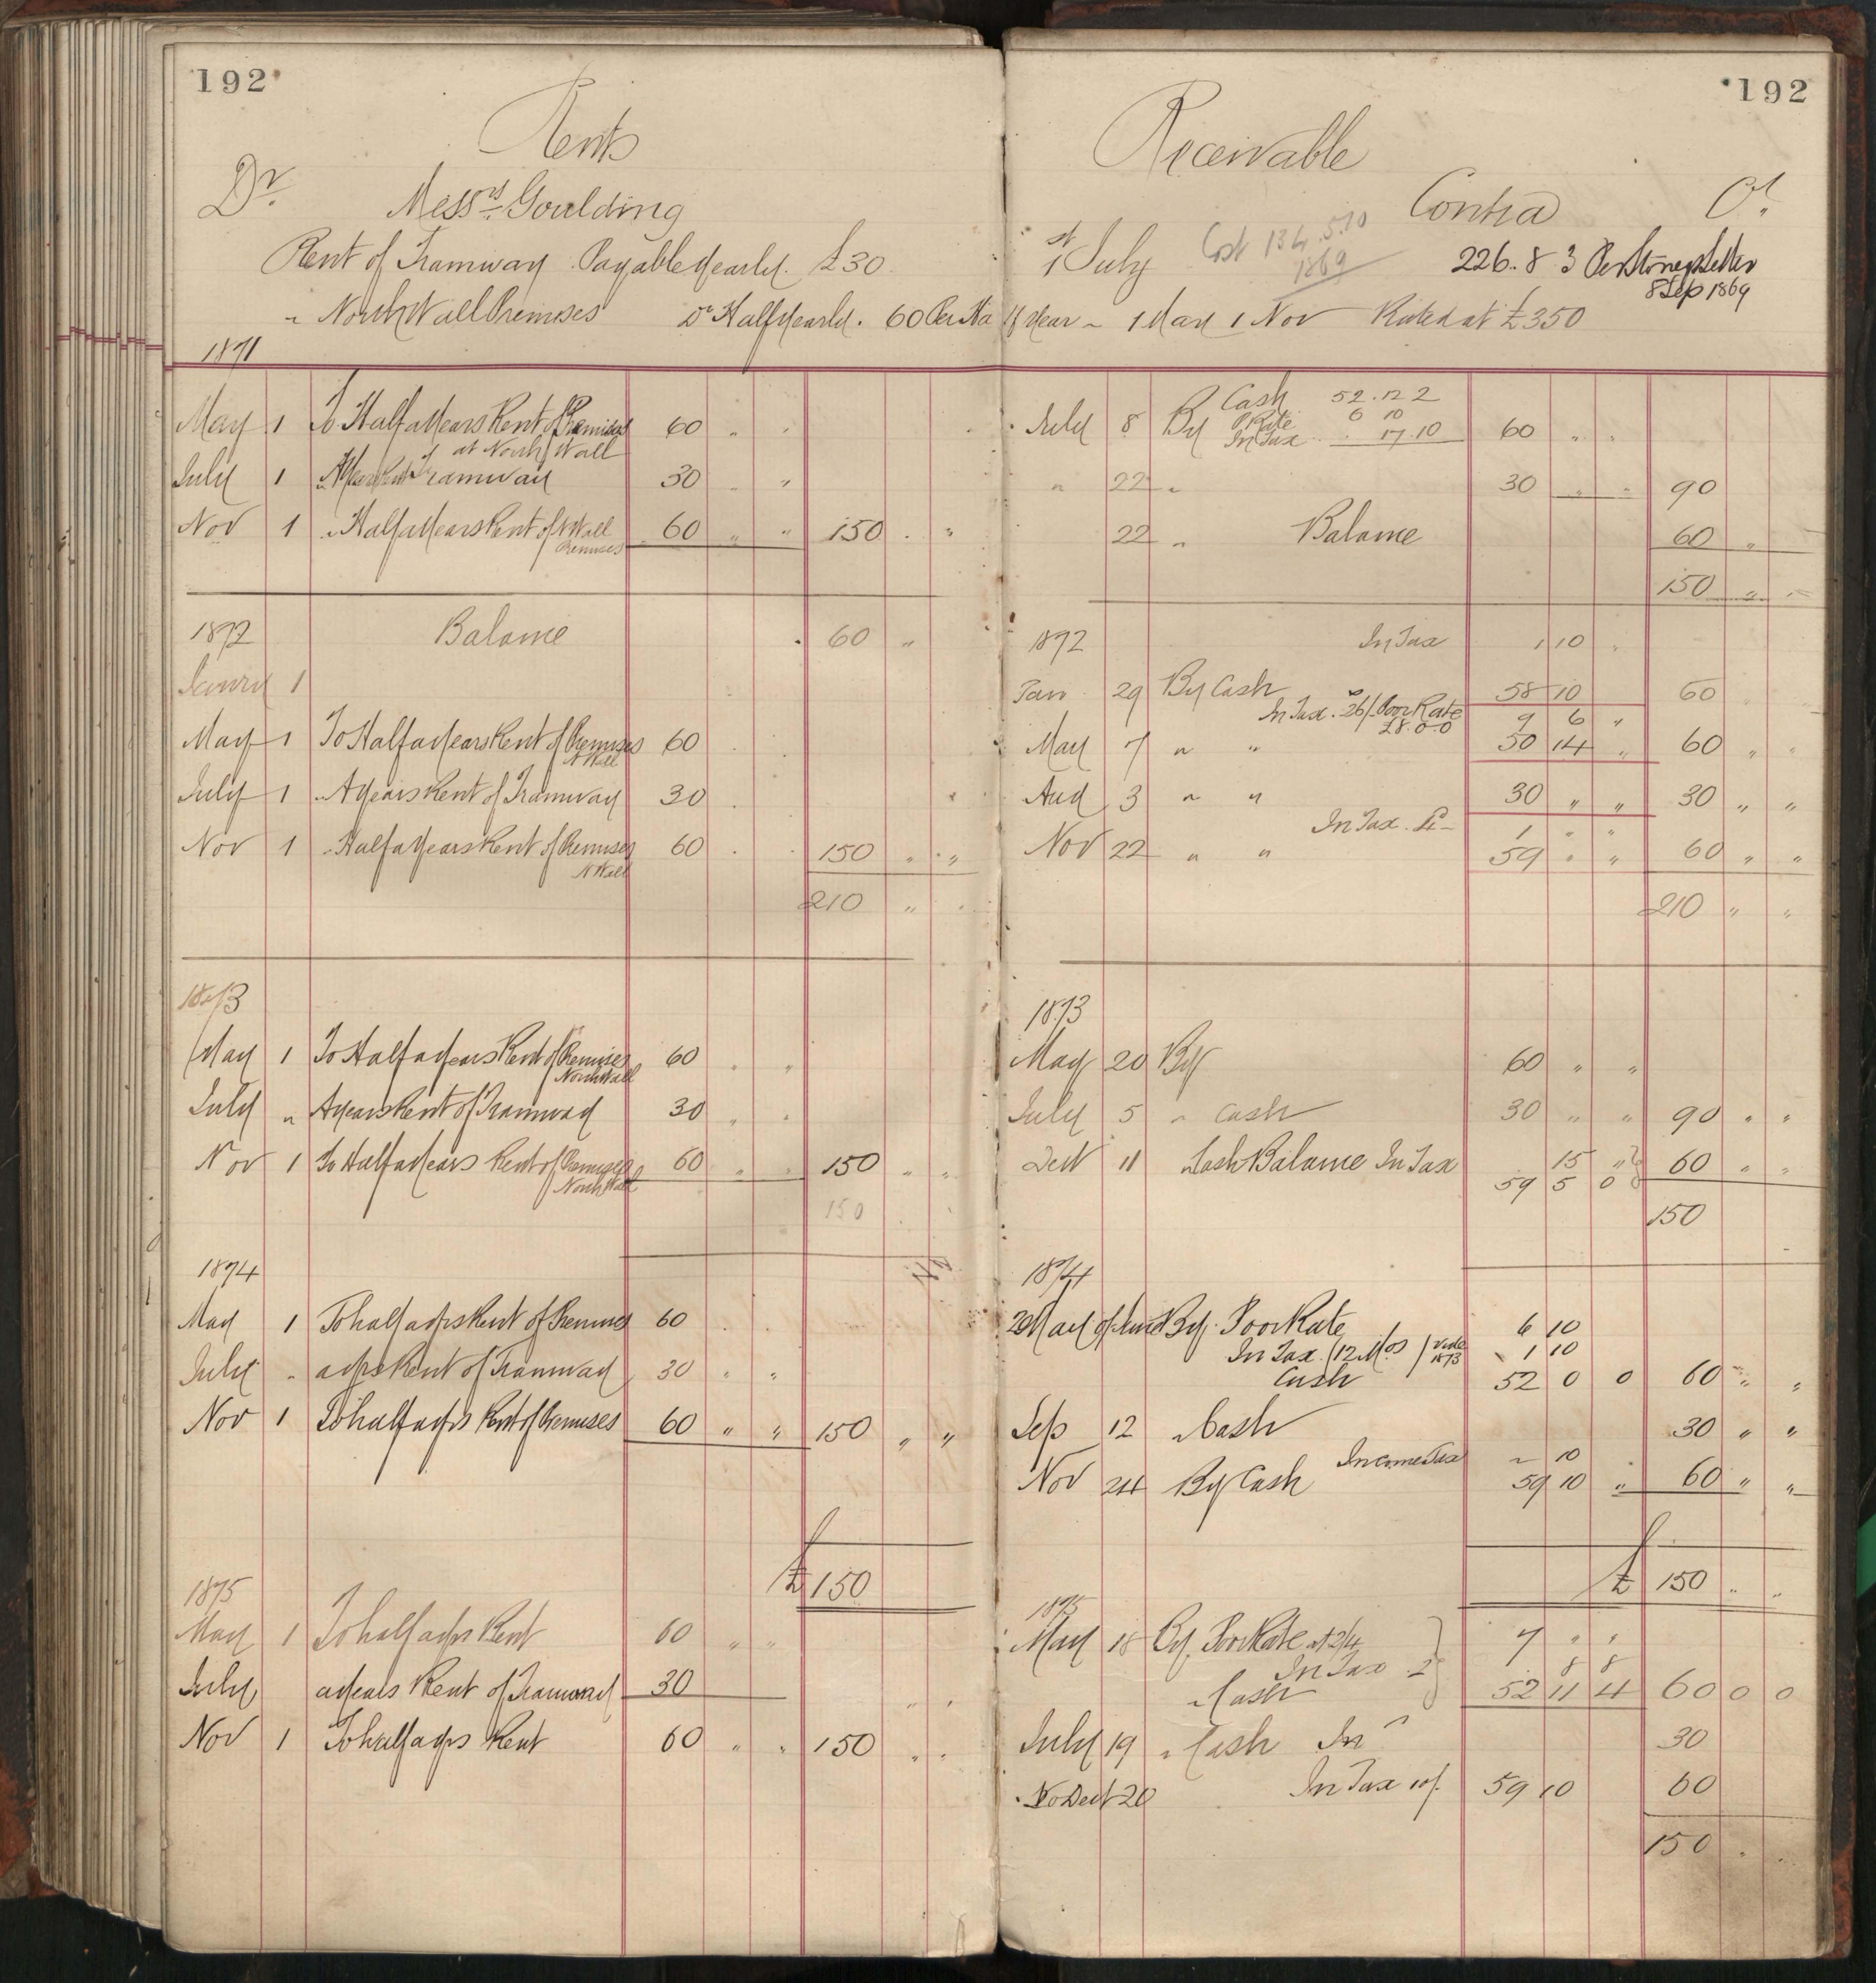 192
Rents
Dr. Messrs. Goulding
Rent of Tramway Payable yearly. £30.
" North Wall Premises Do Half yearly. 60 Per Ha
1871
May 1 To Half a Years Rent of Premises 60 " "
at North Wall
July 1 " A Years Rent Tramway 30 " "
Nov 1 " Half a Years Rent of N Wall 60 " " 150 " "
Premises
1872 Balance 60 "
January 1
May 1 To Half a Years Rent of Premises 60
N Wall
July 1 " A years Rent of Tramway 30
Nov 1 " Half a Years Rent of Premises 60 150 " "
N Wall
210 "
1873
May 1 To Half a Years Rent of Premises 60 " "
North Wall
July " A years Rent of Tramway 30 " "
Nov 1 To Half a Years Rent of Premises 60 " " 150 " "
North Wall
150
1874
May 1 To half a yrs Rent of Premises 60
July " a yrs Rent of Tramway 30 " "
Nov 1 To half a yrs Rent of Premises 60 " " 150 " "
£ 150
1875
May 1 To half a yrs Rent 60 " "
July a years Rent of Tramway 30
Nov 1 To half a yrs Rent 60 " " 150 " "
192
Receivable
Contra Cr.
1st July Cost 134.5.10 226.8 3 Per Stoneys Letter
1869 8 Sep 1869
lf Year " 1 May 1 Nov Rated at £350
Cash 52.12 2
July 8 By P Rate 6 10 60 " "
In Tax 17.10
" 22 " 30 " " 90
22 " Balance 60 "
150 " "
1872 In Tax 1 10 "
Jan 29 By Cash 58 10 60
In Tax. 26/- Poor Rate 9 6 "
£8.0.0
May 7 " " 50 14 " 60 " "
Aug 3 " " 30 " " 30 " "
In Tax. £1- 1 " "
Nov 22 " " 59 " " 60 " "
210 " "
1873
May 20 By 60 " "
July 5 " Cash 30 " " 90 " "
Dec 11 Cash Balance In Tax 15 " 60 " "
59 5 0
150
1874
20 May By. Poor Rate 6 10
In Tax (12 Mos) vide 1873 1 10
Cash 52 0 0 60 " "
Sep 12 " Cash 30 " "
Income Tax " 10
Nov 24 By Cash 59 10 " 60 " "
£ 150 " "
1875
May 18 By. Poor Rate at 2/4 7 " "
In Tax 2 8 8
" Cash 52 11 4 60 0 0
July 19 " Cash In 30
Dec 20 In Tax 10/. 59 10 60
150 "